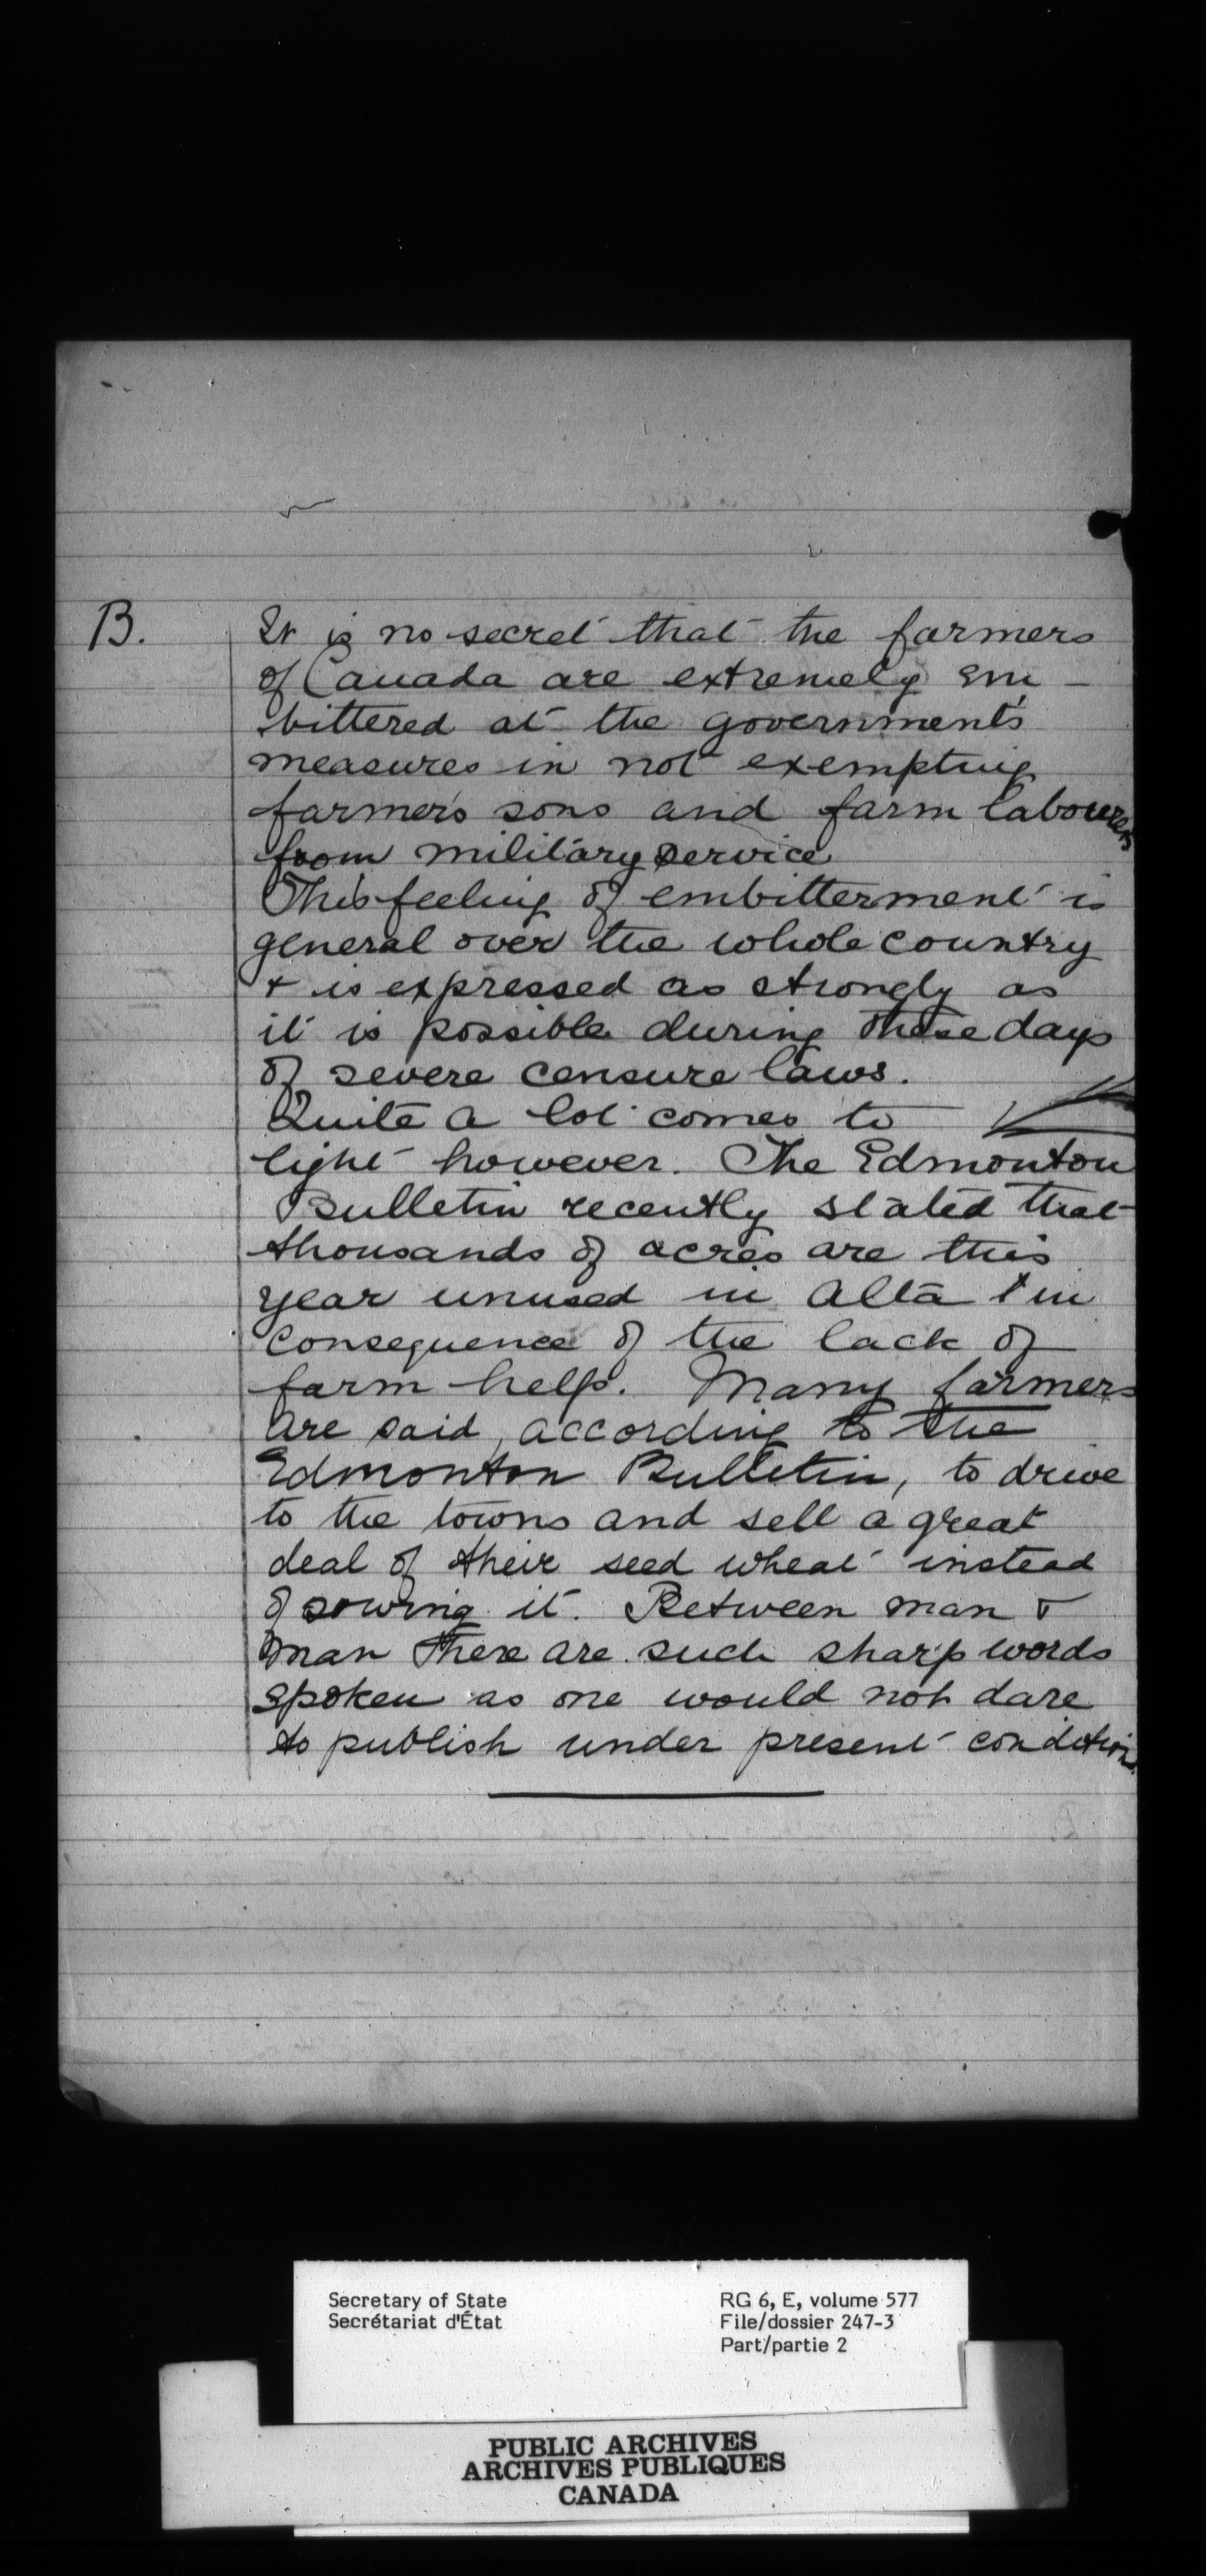 B. It is no secret that the farmers
of Canada are extremely em-
bittered at the government's
measures in not exempting
farmer's sons and farm labourers
from military service
This feeling of embitterment is
general over the whole country
+ is expressed as strongly as
it is possible during these days
of severe censure laws.
Quite a lot comes to
light however. The Edmonton
Bulletin recently stated that
thousands of acres are this
year unused in Alta in
consequence of the lack of
farm help. Many farmers
are said, according to the
Edmonton Bulletin, to drive
to the towns and sell a great
deal of their seed wheat instead
of sowing it. Between man &
man there are such sharp words
spoken as one would not dare
to publish under present condition.
Secretary of State
Secrétariat d'État
RG 6, E, volume 577
File/dossier 247-3
Part/partie 2
PUBLIC ARCHIVES
ARCHIVES PUBLIQUES
CANADA